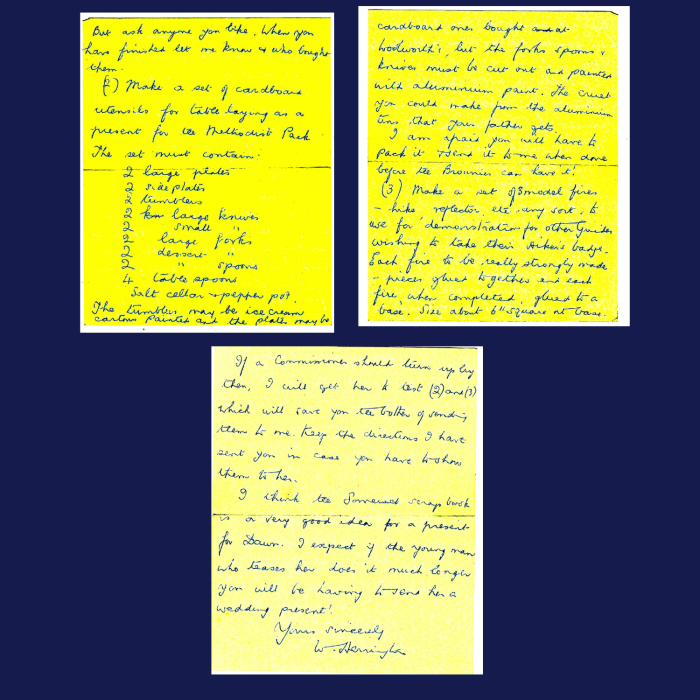 But ask anyone you like. When you
have finished let me know & who bought
them.
(2) Make a set of cardboard
utensils for table laying as a
present for the Methodist Pack
The set must contain:
2 large plates
2 side plates
2 tumblers
2 large knives
2 small "
2 large forks
2 dessert "
2 " spoons
4 table spoons
Salt cellar & pepper pot.
The tumblers may be ice cream
cartons painted and the plates may be
cardboard ones bought at
Woolworth's, but the forks spoons &
knives must be cut out and painted
with aluminium paint. The cruet
you could make from the aluminium
tins that your father gets.
I am afraid you will have to
pack it & send it to me when done
before the Brownies can have it!
(3) Make a set of 3 model fires
- hike, reflector, etc. any sort, to
use for demonstration for other Guides
wishing to take their Hiker's badge.
Each fire to be really strongly made
- pieces glued together and each
fire, when completed, glued to a
base. Size about 6" square at base.
If a Commissioner should turn up by
then, I will get her to test (2) and (3)
which will save you the bother of sending
them to me. Keep the directions I have
sent you in case you have to show
them to her.
I think the Somerset scrap book
is a very good idea for a present
for Dawn. I expect if the young man
who teases her does it much longer
you will be having to send her a
wedding present!
Yours sincerely
W. Herrington